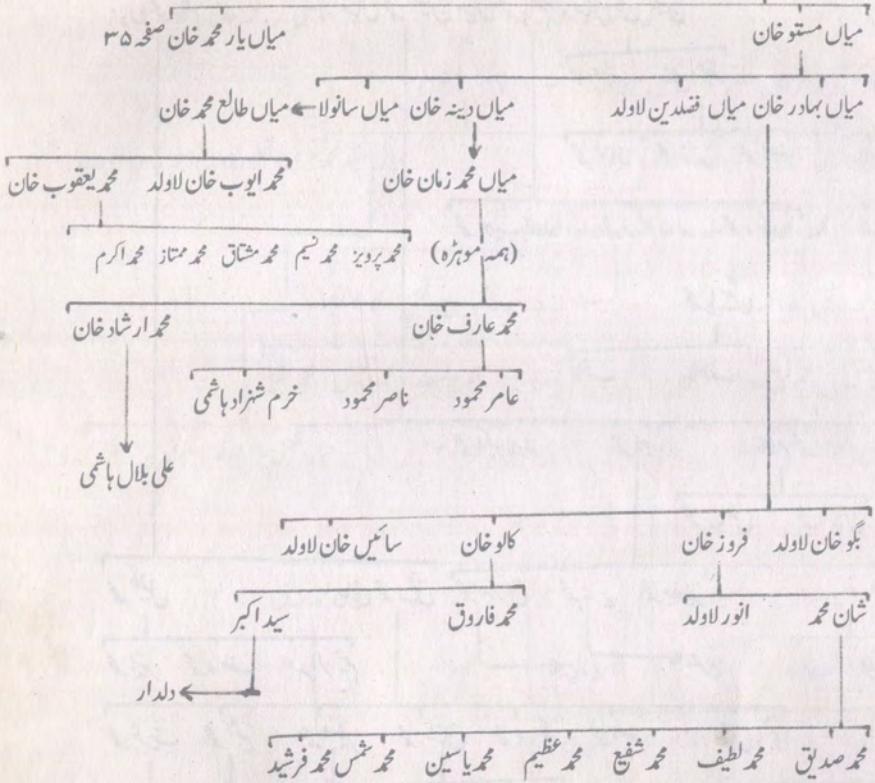 میاں مستو خان میاں یار محمد خان صفحہ ۳۵
میاں بہادر خان میاں فضلدین لاولد میاں دینہ خان میاں سانولا میاں طالع محمد خان
محمد ایوب خان لاولد محمد یعقوب خان
میاں محمد زمان خان
(ہمہ موہڑہ) محمد پرویز محمد نسیم محمد مشتاق محمد ممتاز محمد اکرم
محمد عارف خان محمد ارشاد خان
عامر محمود ناصر محمود خرم شہزاد ہاشمی
علی بلال ہاشمی
بگو خان لاولد فروز خان کالو خان سائیں خان لاولد
شان محمد انور لاولد محمد فاروق سید اکبر
دلدار
محمد صدیق محمد لطیف محمد شفیع محمد عظیم محمد یاسین محمد شمس محمد فرشید